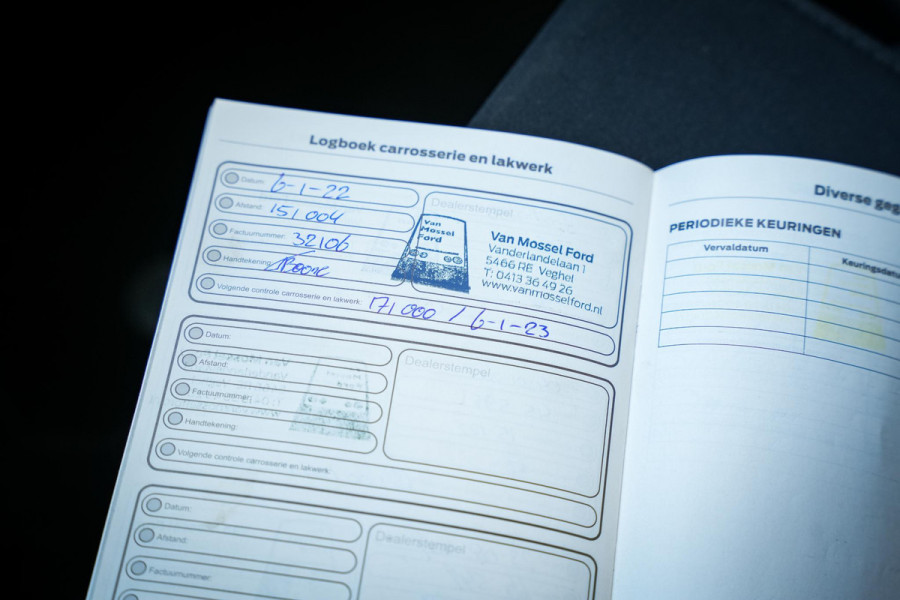 Logboek carrosserie en lakwerk
Datum: 6-1-22
Afstand: 151004
Factuurnummer: 32106
Handtekening:
Volgende controle carrosserie en lakwerk: 171000 / 6-1-23
Dealerstempel
Van
Mossel
Ford
Van Mossel Ford
Vanderlandelaan 1
5466 RE Veghel
T: 0413 36 49 26
www.vanmosselford.nl
Datum:
Afstand:
Factuurnummer:
Handtekening:
Volgende controle carrosserie en lakwerk:
Dealerstempel
Datum:
Afstand:
Factuurnummer:
Dealerstempel
Diverse geg
PERIODIEKE KEURINGEN
Vervaldatum
Keuringsdat